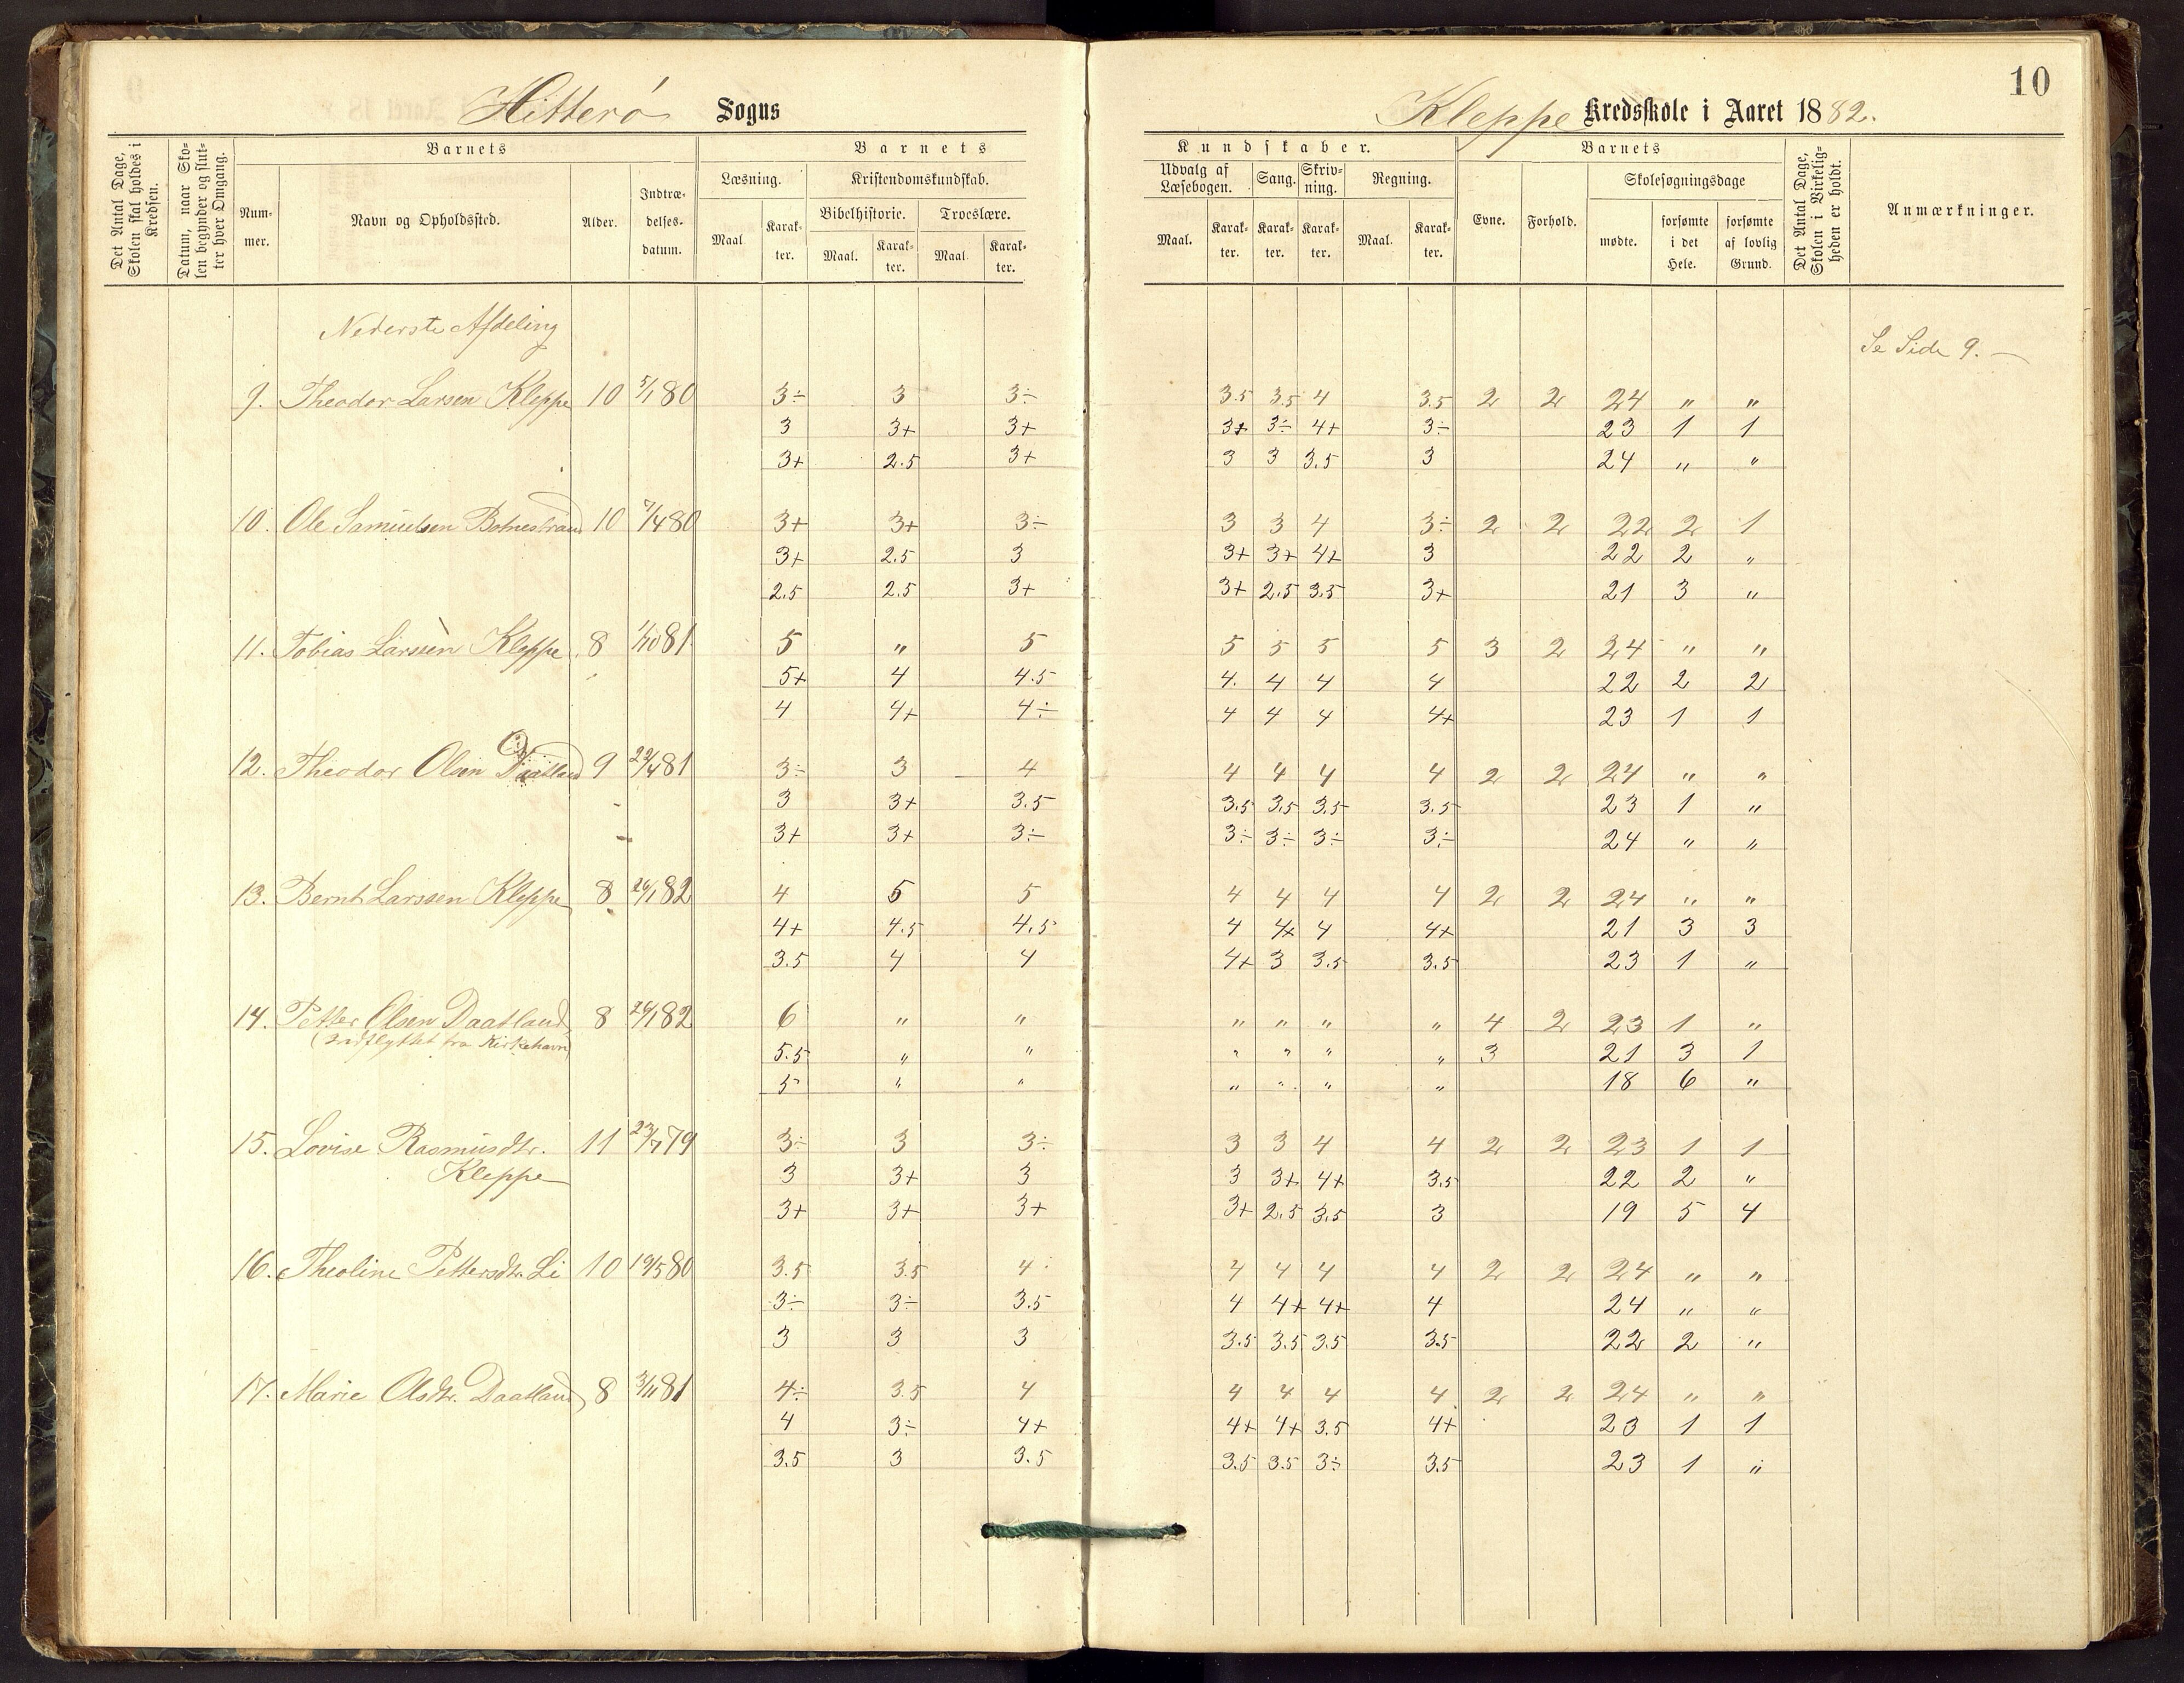 10
Hitterø Sogns
Kleppe Kredsskole i Aaret 1882.
Det Antal Dage, Skolen skal holdes i Kredsen.
Datum, naar Skolen begynder og slutter hver Omgang.
Barnets
Nummer.
Navn og Opholdssted.
Alder.
Indtrædelsesdatum.
Barnets
Læsning.
Maal.
Karakter.
Kristendomskundskab.
Bibelhistorie.
Maal.
Karakter.
Troeslære.
Maal.
Karakter.
Kundskaber.
Udvalg af Læsebogen.
Maal.
Karakter.
Sang.
Karakter.
Skrivning.
Karakter.
Regning.
Maal.
Karakter.
Barnets
Evne.
Forhold.
Skolesøgningsdage
mødte.
forsømte i det Hele.
forsømte af lovlig Grund.
Det Antal Dage, Skolen i Virkeligheden er holdt.
Anmærkninger.
Nederste Afdeling
Se Side 9.
9. Theodor Larsen Kleppe 10 5/1 80 3÷ 3 3÷ 3.5 3.5 4 3.5 2 2 24 " "
3 3+ 3+ 3+ 3÷ 4+ 3÷ 23 1 1
3+ 2.5 3+ 3 3 3.5 3 24 " "
10. Ole Samuelsen Botnestrand 10 7/4 80 3+ 3+ 3÷ 3 3 4 3÷ 2 2 22 2 1
3+ 2.5 3 3+ 3+ 4+ 3 22 2 "
2.5 2.5 3+ 3+ 2.5 3.5 3+ 21 3 "
11. Tobias Larssen Kleppe 8 1/10 81 5 " 5 5 5 5 5 3 2 24 " "
5+ 4 4.5 4. 4 4 4 22 2 2
4 4+ 4÷ 4 4 4 4+ 23 1 1
12. Theodor Olsen Daatland 9 22/4 81 3÷ 3 4 4 4 4 4 2 2 24 " "
3 3+ 3.5 3.5 3.5 3.5 3.5 23 1 "
3+ 3+ 3÷ 3÷ 3÷ 3÷ 3÷ 24 " "
13. Bernt Larssen Kleppe 8 26/1 82 4 5 5 4 4 4 4 2 2 24 " "
4+ 4.5 4.5 4 4+ 4 4+ 21 3 3
3.5 4 4 4+ 3 3.5 3.5 23 1 "
14. Petter Olsen Daatland 8 26/1 82 6 " " " " " " 4 2 23 1 "
(Indflyttet fra Kirkehavn) 5.5 " " " " " " 3 21 3 1
5 " " " " " " 18 6 "
15. Lovise Rasmusdtr. 11 23/7 79 3÷ 3 3÷ 3 3 4 4 2 2 23 1 1
Kleppe 3 3+ 3 3 3+ 4+ 3.5 22 2 "
3+ 3+ 3+ 3+ 2.5 3.5 3 19 5 4
16. Theoline Pettersdtr. Li 10 19/5 80 3.5 3.5 4 4 4 4 4 2 2 24 " "
3÷ 3÷ 3.5 4 4+ 4+ 4 24 " "
3 3 3 3.5 3.5 3.5 3.5 22 2 "
17. Marie Olsdtr. Daatland 8 3/11 81 4÷ 3.5 4 4 4 4 4 2 2 24 " "
4 3÷ 4+ 4+ 4+ 3.5 4+ 23 1 1
3.5 3 3.5 3.5 3.5 3÷ 3.5 23 1 "